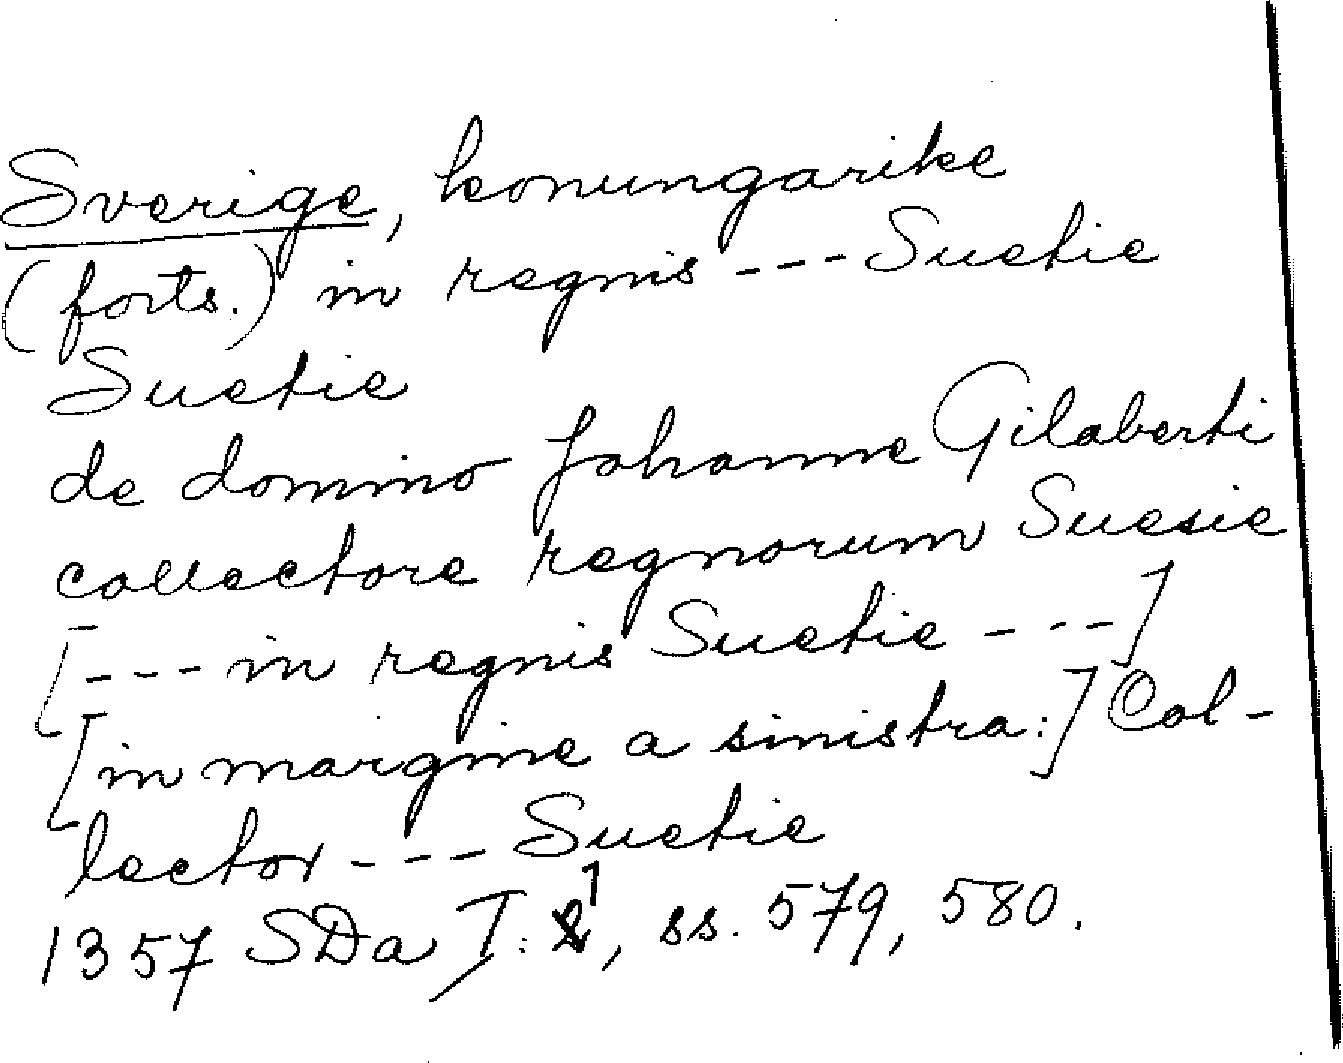 Sverige, konungarike
(forts.) in regnis --- Suetie
Suetie
de domino Johanne Gilaberti
collectore regnorum Suesie
[--- in regnis Suetie ---]
[in margine a sinistra:] Col-
lector --- Suetie
1357 SDa I:1, ss. 579, 580.